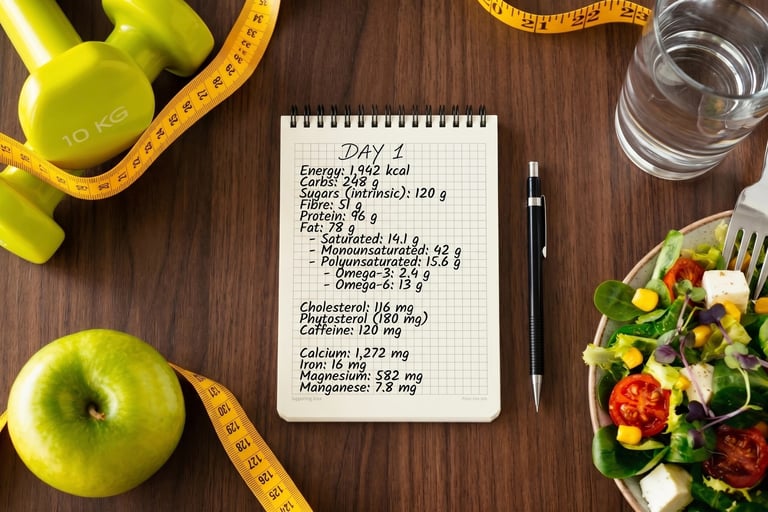 10 KG
DAY 1
Energy: 1,942 kcal
Carbs: 248 g
Sugars (intrinsic): 120 g
Fibre: 51 g
Protein: 96 g
Fat: 78 g
- Saturated: 14.1 g
- Monounsaturated: 42 g
- Polyunsaturated: 15.6 g
- Omega-3: 2.4 g
- Omega-6: 13 g
Cholesterol: 116 mg
Phytosterol (180 mg)
Caffeine: 120 mg
Calcium: 1,272 mg
Iron: 16 mg
Magnesium: 582 mg
Manganese: 7.8 mg